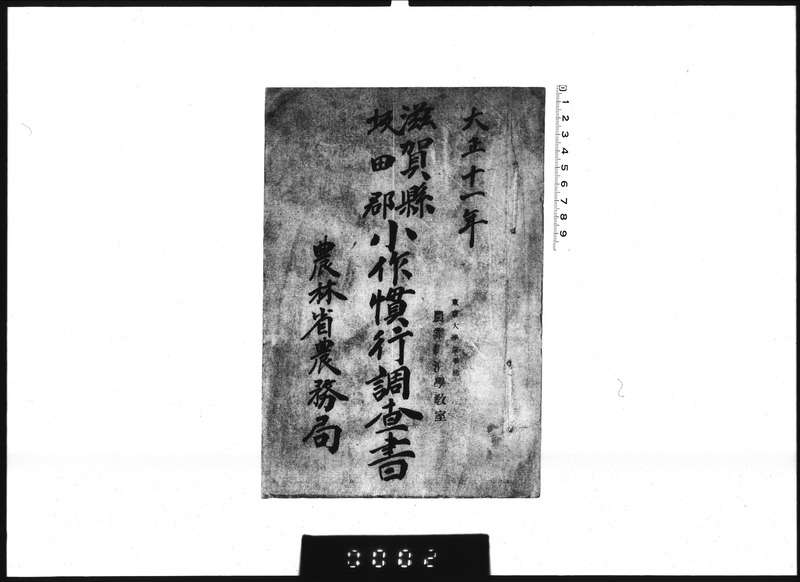 大正十一年
滋賀縣
坂田郡
小作慣行調査書
農林省農務局
東京大學農學部
農業經濟學教室
0 1 2 3 4 5 6 7 8 9
0002